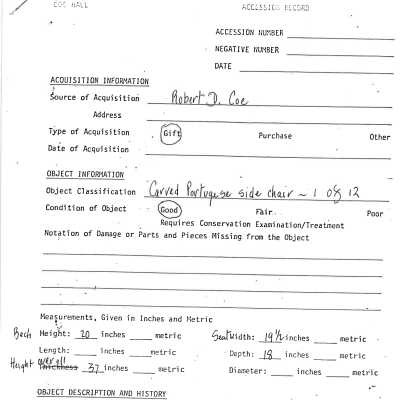 COE HALL ACCESSION RECORD
ACCESSION NUMBER
NEGATIVE NUMBER
DATE
ACQUISITION INFORMATION
Source of Acquisition Robert D. Coe
Address
Type of Acquisition Gift Purchase Other
Date of Acquisition
OBJECT INFORMATION
Object Classification Carved Portuguese side chair ~ 1 of 12
Condition of Object Good Fair Poor
Requires Conservation Examination/Treatment
Notation of Damage or Parts and Pieces Missing from the Object
Measurements, Given in Inches and Metric
Back Height: 20 inches metric Seat Width: 19 1/2 inches metric
Length: inches metric Depth: 18 inches metric
Height overall Thickness 37 inches metric Diameter: inches metric
OBJECT DESCRIPTION AND HISTORY